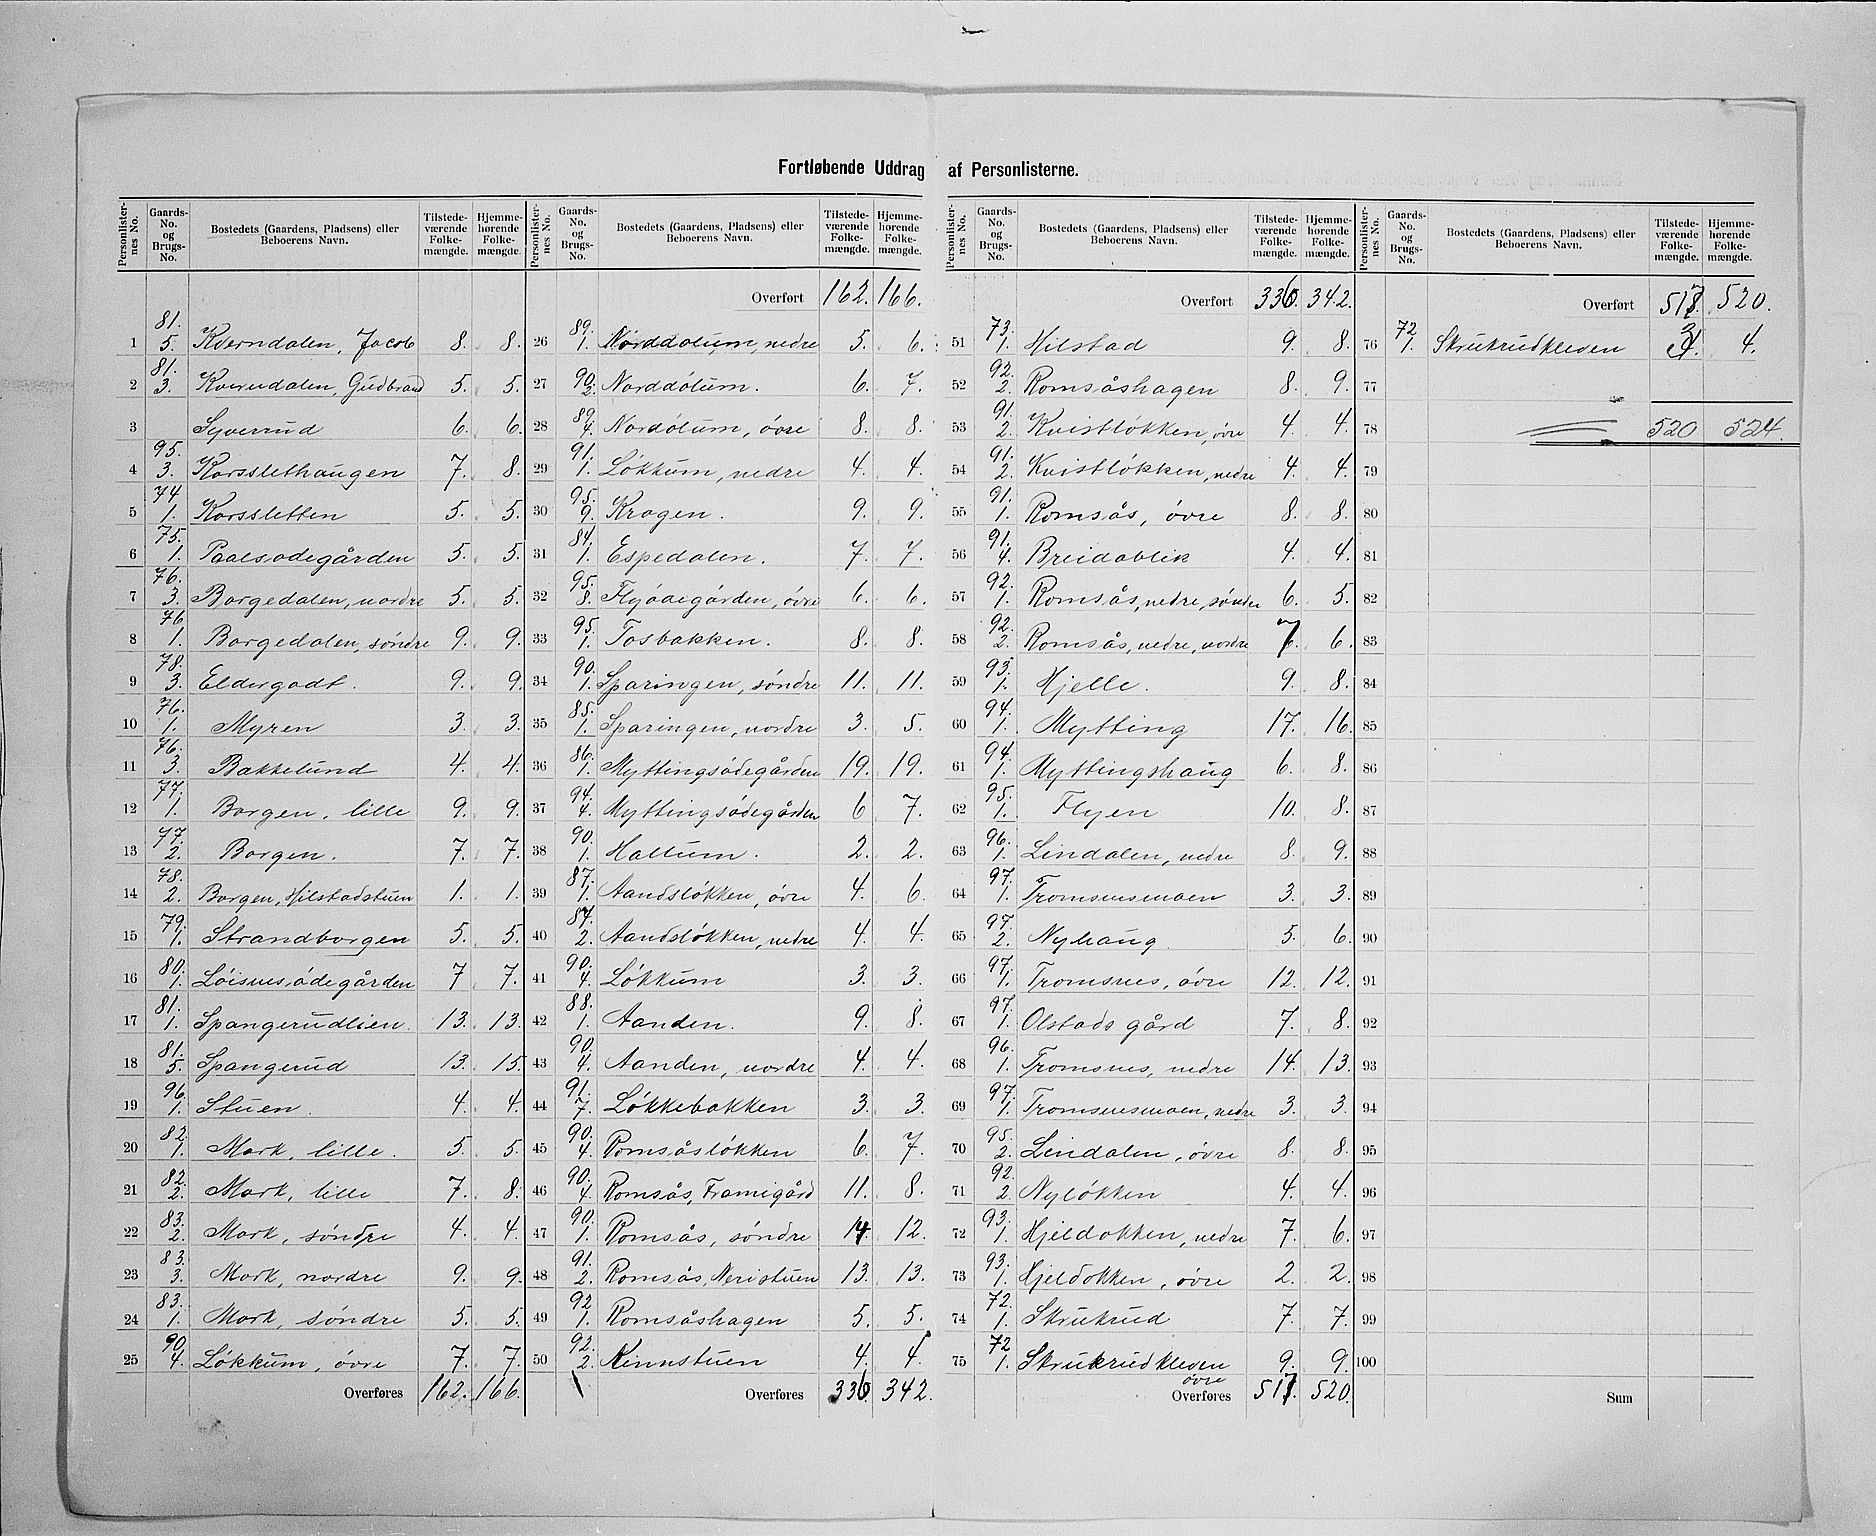 Fortløbende Uddrag af Personlisterne.
Personlister-nes No. | Gaards-No. og Brugs-No. | Bostedets (Gaardens, Pladsens) eller Beboerens Navn. | Tilstede-værende Folke-mængde. | Hjemme-hørende Folke-mængde.
1 81. 5. Kverndalen, Jacob 8. 8.
2 81. 3. Kverndalen, Gudbrand 5. 5.
3 Syverud 6. 6.
4 95. 3. Korsslethaugen 7. 8.
5 74. 1. Korssletten 5. 5.
6 75. 1. Baalsødegården 5. 5.
7 76. 3. Borgedalen, nordre 5. 5.
8 76 1. Borgedalen, søndre 9. 9.
9 78. 3. Eldergodt. 9. 9.
10 76. 1. Myren 3. 3.
11 76. 3. Bakkelund 4. 4.
12 77. 1. Borgen, lille 9. 9.
13 77. 2. Borgen. 7. 7.
14 78. 2. Borgen, Hilstadstuen 1. 1.
15 79. 1. Strandborgen 5. 5.
16 80. 1. Løisnesødegården 7 7.
17 81. 1. Spangerudlien. 13. 13.
18 81. 5. Spangerud 13. 15.
19 96. 1. Stuen. 4. 4.
20 82. 1. Mork, lille. 5. 5.
21 82. 2. Mork, lille 7. 8.
22 83. 2. Mork, søndre 4. 4.
23 83. 3. Mork, nordre 9. 9.
24 83. 1. Mork, søndre 5. 5.
25 90. 4. Løkkum, øvre 7. 7.
Overføres 162. 166.
Personlister-nes No. | Gaards-No. og Brugs-No. | Bostedets (Gaardens, Pladsens) eller Beboerens Navn. | Tilstede-værende Folke-mængde. | Hjemme-hørende Folke-mængde.
Overført 162. 166.
26 89. 1. Norddolum, nedre 5. 6.
27 90. 2. Norddolum. 6. 7.
28 89. 4. Nordolum, øvre 8. 8.
29 91. 1. Løkkum, nedre 4. 4.
30 95. 9. Kragen. 9. 9.
31 84. 1. Espedalen. 7. 7.
32 95. 8. Flyødegården, øvre 6. 6.
33 95. 1. Tosbakken. 8. 8.
34 90. 1. Sparingen, søndre 11. 11.
35 85. 1. Sparingen, nordre 3. 5.
36 86. 1. Myttingsødegården 19. 19.
37 94. 4. Myttingsødegården 6 7.
38 90. 1. Hallum. 2. 2.
39 87. 1. Aandsløkken, øvre 4. 6.
40 87. 2. Aandsløkken, nedre 4. 4.
41 90. 4. Løkkum 3. 3.
42 88. 1. Aanden. 9. 8.
43 90. 4. Aanden, nordre 4. 4.
44 91. 7. Løkkebakken 3. 3.
45 90. 4. Romsåsløkken 6. 7.
46 90. 4. Romsås, Framigård 11. 8.
47 90. 1. Romsås, søndre 14. 12.
48 91. 2. Romsås, Neristuen 13. 13.
49 92 1. Romsåshagen 5. 5.
50 92. 2. Kinnstuen 4. 4.
Overføres 336. 342.
Personlister-nes No. | Gaards-No. og Brugs-No. | Bostedets (Gaardens, Pladsens) eller Beboerens Navn. | Tilstede-værende Folke-mængde. | Hjemme-hørende Folke-mængde.
Overført 336. 342.
51 73. 1. Hilstad 9. 8.
52 92. 2. Romsåshagen 8. 9.
53 91. 2. Kvistløkken, øvre 4. 4.
54 91. 2. Kvistløkken, nedre 4. 4.
55 91. 1. Romsås, øvre 8. 8.
56 91. 4. Breidablik 4. 4.
57 92. 1. Romsås, nedre, søndre 6. 5.
58 92. 2. Romsås, nedre, nordre 7. 6.
59 93. 1. Hjelle. 9. 8.
60 94. 1. Mytting 17. 16.
61 94. 1. Myttingshaug 6. 8.
62 95. 1. Flyen 10. 8.
63 96. 1. Lindalen, nedre 8. 9.
64 97. 1. Tromsnesmoen 3. 3.
65 97. 2. Nyhaug. 5. 6.
66 97. 1. Tromsnes, øvre 12. 12.
67 97. 1. Olstads gård 7. 8.
68 96. 1. Tromsnes, nedre 14. 13.
69 97. 1. Tromsnesmoen, nedre 3. 3.
70 95. 2. Lindalen, øvre 8. 8.
71 92. 2. Nyløkken 4. 4.
72 93. 1. Hjeldokken, nedre 7. 6.
73 93. 1. Hjeldokken, øvre 2. 2.
74 72. 1. Skrukrud 7. 7.
75 72 1. Skrukrudkleven øvre 9. 9.
Overføres 517. 520.
Personlister-nes No. | Gaards-No. og Brugs-No. | Bostedets (Gaardens, Pladsens) eller Beboerens Navn. | Tilstede-værende Folke-mængde. | Hjemme-hørende Folke-mængde.
Overført 517. 520.
76 72 1. Skrukrudkleven 3 4.
77
78 520 524.
79
80
81
82
83
84
85
86
87
88
89
90
91
92
93
94
95
96
97
98
99
100
Sum